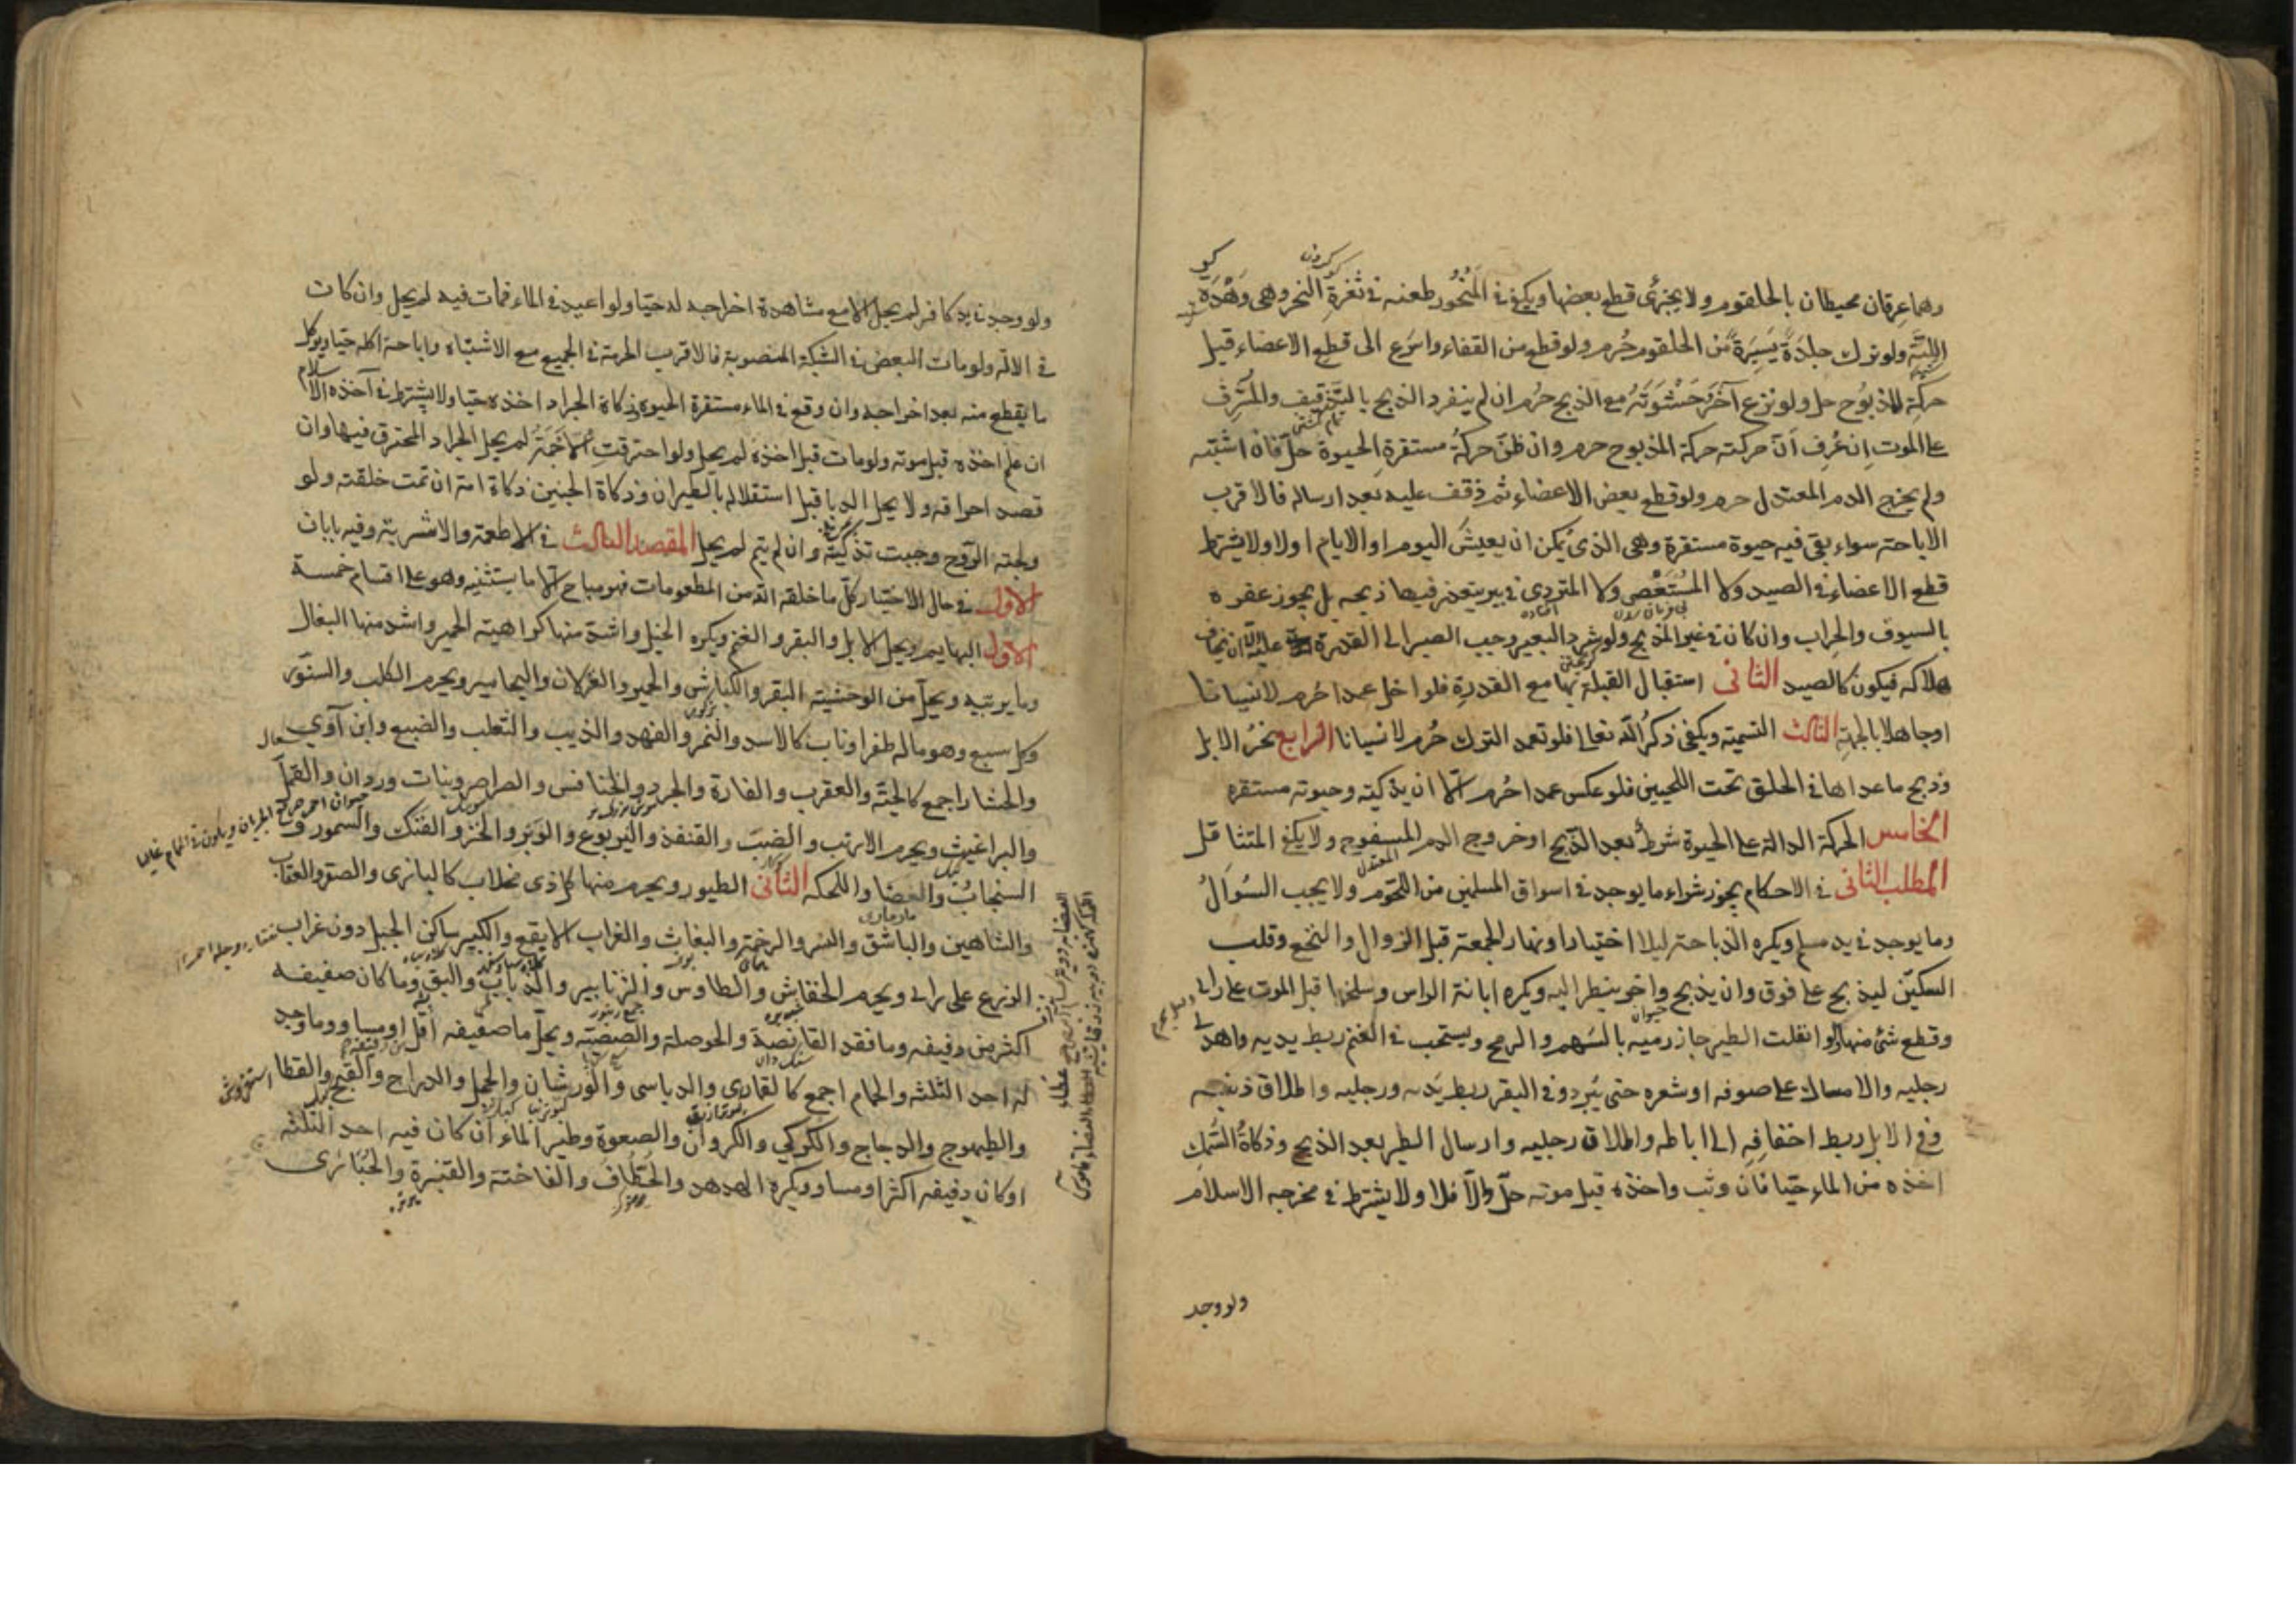 وهما عرقان محيطان بالحلقوم ولا يجزئ قطع بعضها ويكفي في المنحور طعنه في ثغرة النحر وهي وهدة
اللبة ولو ترك جلدة يسيرة من الحلقوم حرم ولو قطع من القفاء واسرع الى قطع الاعضاء قبل
حركة المذبوح حل ولو نزع آخر حشوته مع الذبح حرم ان لم ينفرد الذبح بالتذقيف والمشرف
على الموت ان عرف ان حركته حركة المذبوح حرم وان ظن حركة مستقرة الحيوة حل فان اشتبه
ولم يخرج الدم المعتدل حرم ولو قطع بعض الاعضاء ثم ذقف عليه بعد ارساله فالاقرب
الاباحة سواء بقي فيه حيوة مستقرة وهي الذي يمكن ان يعيش اليوم او الايام اولا ولا يشترط
قطع الاعضاء في الصيد ولا المستعصي ولا المتردي في بير يتعذر فيها ذبحه بل يجوز عقره
بالسيوف والحراب وان كان في غير المذبح ولو شرد البعير وجب الصبر الى القدرة عليه الا ان يخاف
هلاكه فيكون كالصيد الثاني استقبال القبلة بها مع القدرة فلو اخل عمدا حرم لا نسيانا
او جاهلا بالجهة الثالث التسمية ويكفي ذكر الله تعالى فلو تعمد الترك حرم لا نسيانا الرابع نحر الابل
وذبح ما عداها في الحلق تحت اللحيين فلو عكس عمدا حرم الا ان يذكيه وحيوته مستقره
الخامس الحركة الدالة على الحيوة شرط بعد الذبح او خروج الدم المسفوح ولا يكفي المتثاقل
المطلب الثاني في الاحكام يجوز شراء ما يوجد في اسواق المسلمين من اللحوم ولا يجب السوال
وما يوجد في يد مسلم ويكره الذباحة ليلا اختيارا ونهار الجمعة قبل الزوال والنخع وقلب
السكين ليذبح على فوق وان يذبح واخر ينظر اليه ويكره ابانة الراس وسلخها قبل الموت على راى
وقطع شئ منها ولو انفلت الطير جاز رميه بالسهم والرمح ويستحب في الغنم ربط يديه واحدى
رجليه والامساك على صوفه او شعره حتى يبرد وفي البقر ربط يديه ورجليه واطلاق ذنبه
وفي الابل ربط اخفافه الى اباطه واطلاق رجليه وارسال الطير بعد الذبح وذكاة السمك
اخذه من الماء حيا فان وثب واخذه قبل موته حل والا فلا ولا يشترط في مخرجه الاسلام
ولو وجد
ولو وجد في يد كافر لم يحل الا مع مشاهدة اخراجه له حيا ولو اعيد في الماء فمات فيه لم يحل وان كات
في الالة ولو مات البعض في الشبكة المنصوبة فالاقرب الحرمة في الجميع مع الاشتباه واباحة اكله حيا ويوكل
ما يقطع منه بعد اخراجه وان وقع في الماء مستقرة الحيوة ذكاة الجراد اخذه حيا ولا يشترط في آخذه الاسلام
ان علم اخذه قبل موته ولو مات قبل اخذه لم يحل ولو احترقت الاجمة لم يحل الجراد المحترق فيها وان
قصد احراقه ولا يحل الدبا قبل استقلاله بالطيران وذكاة الجنين ذكاة امه ان تمت خلقته ولو
ولجته الروح وجبت تذكيته وان لم يتم لم يحل المقصد الثالث في الاطعمة والاشربة وفيه بابان
الاول في حال الاختيار كل ما خلقه الله من المطعومات فهو مباح الا ما يستثنيه وهو على اقسام خمسة
الاول البهايم ويحل الابل والبقر والغنم ويكره الخيل واشد منها كراهية الحمير واشد منها البغال
وما يربيه ويحل من الوحشية البقر والكباش والحمير والغزلان واليحامير ويحرم الكلب والسنور
وكل سبع وهو ماله ظفر او ناب كالاسد والنمر والفهد والذيب والثعلب والضبع وابن آوى
والحشار اجمع كالحية والعقرب والفارة والجرد والخنافس والصراصر وبنات وردان والقمل
والبراغيث ويحرم الارنب والضب والقنفذ واليربوع والوبر والخز والفنك والسمور و
السنجاب والعضا واللحكه الثاني الطيور ويحرم منها كل ذي مخلاب كالبازى والصقر والعقاب
والشاهين والباشق والنسر والرخمة والبغاث والغراب الابقع والكبير ساكن الجبل دون غراب
الزرع على راى ويحرم الخفاش والطاوس والزنابير والذباب والبق وما كان صفيفه
اكثر من دفيفه وما فقد القانصة والحوصلة والصيصية ويحل ما صفيفه اقل او مساو وما وجد
له احد الثلثه والحمام اجمع كالقمارى والدباسى والورشان والحجل والدراج والقبج والقطا
والطيهوج والدجاج والكركي والكروان والصعوة وطير الماء ان كان فيه احد الثلثه
او كان دفيفه اكثر او مساو ويكره الهدهد والخطاف والفاختة والقنبرة والحبارى